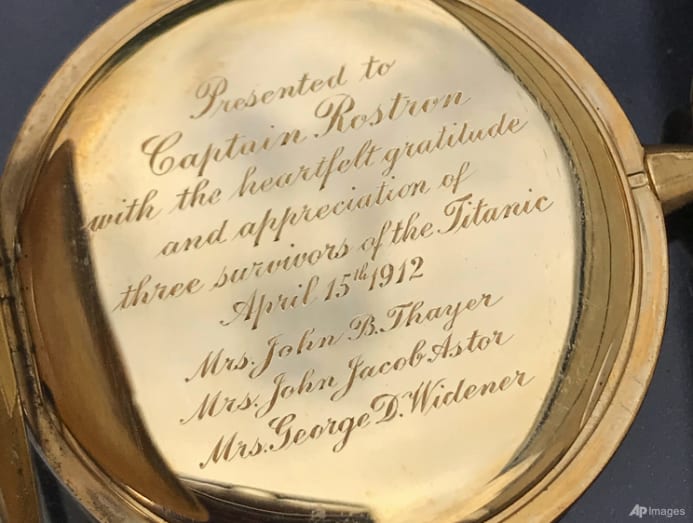 Presented to
Captain Rostron
with the heartfelt gratitude
and appreciation of
three survivors of the Titanic
April 15th 1912
Mrs. John B. Thayer
Mrs. John Jacob Astor
Mrs. George D. Widener
AP Images